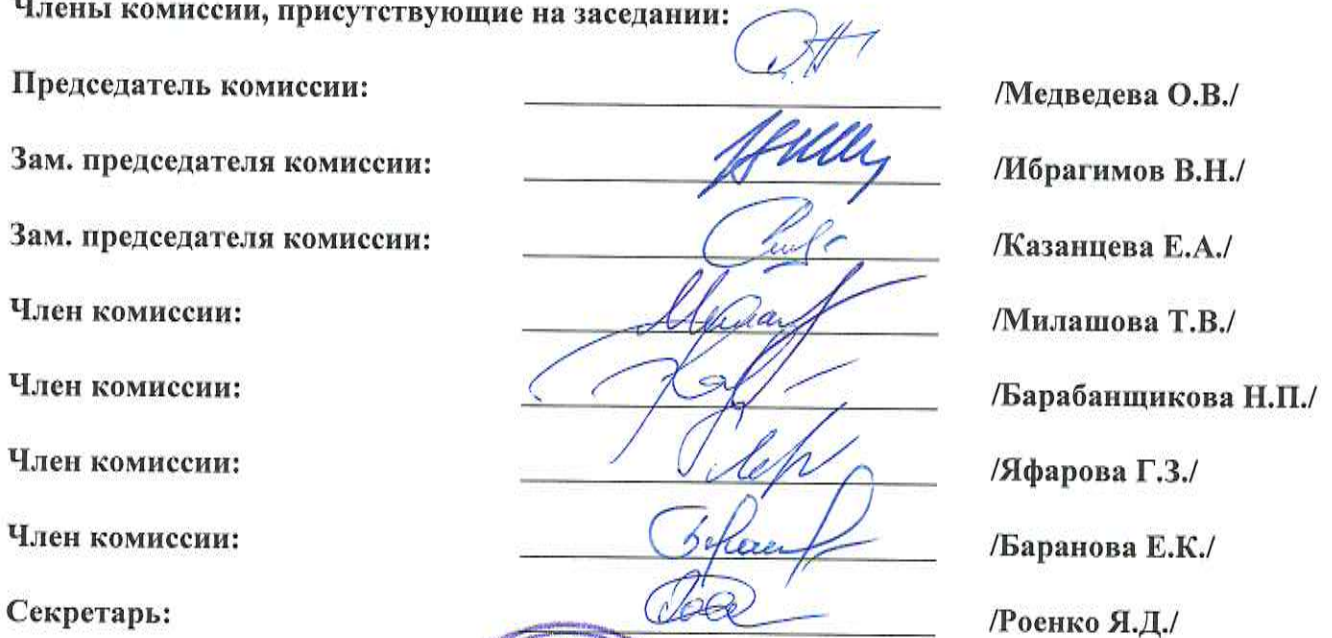 Члены комиссии, присутствующие на заседании:
Председатель комиссии: /Медведева О.В./
Зам. председателя комиссии: /Ибрагимов В.Н./
Зам. председателя комиссии: /Казанцева Е.А./
Член комиссии: /Милашова Т.В./
Член комиссии: /Барабанщикова Н.П./
Член комиссии: /Яфарова Г.З./
Член комиссии: /Баранова Е.К./
Секретарь: /Роенко Я.Д./